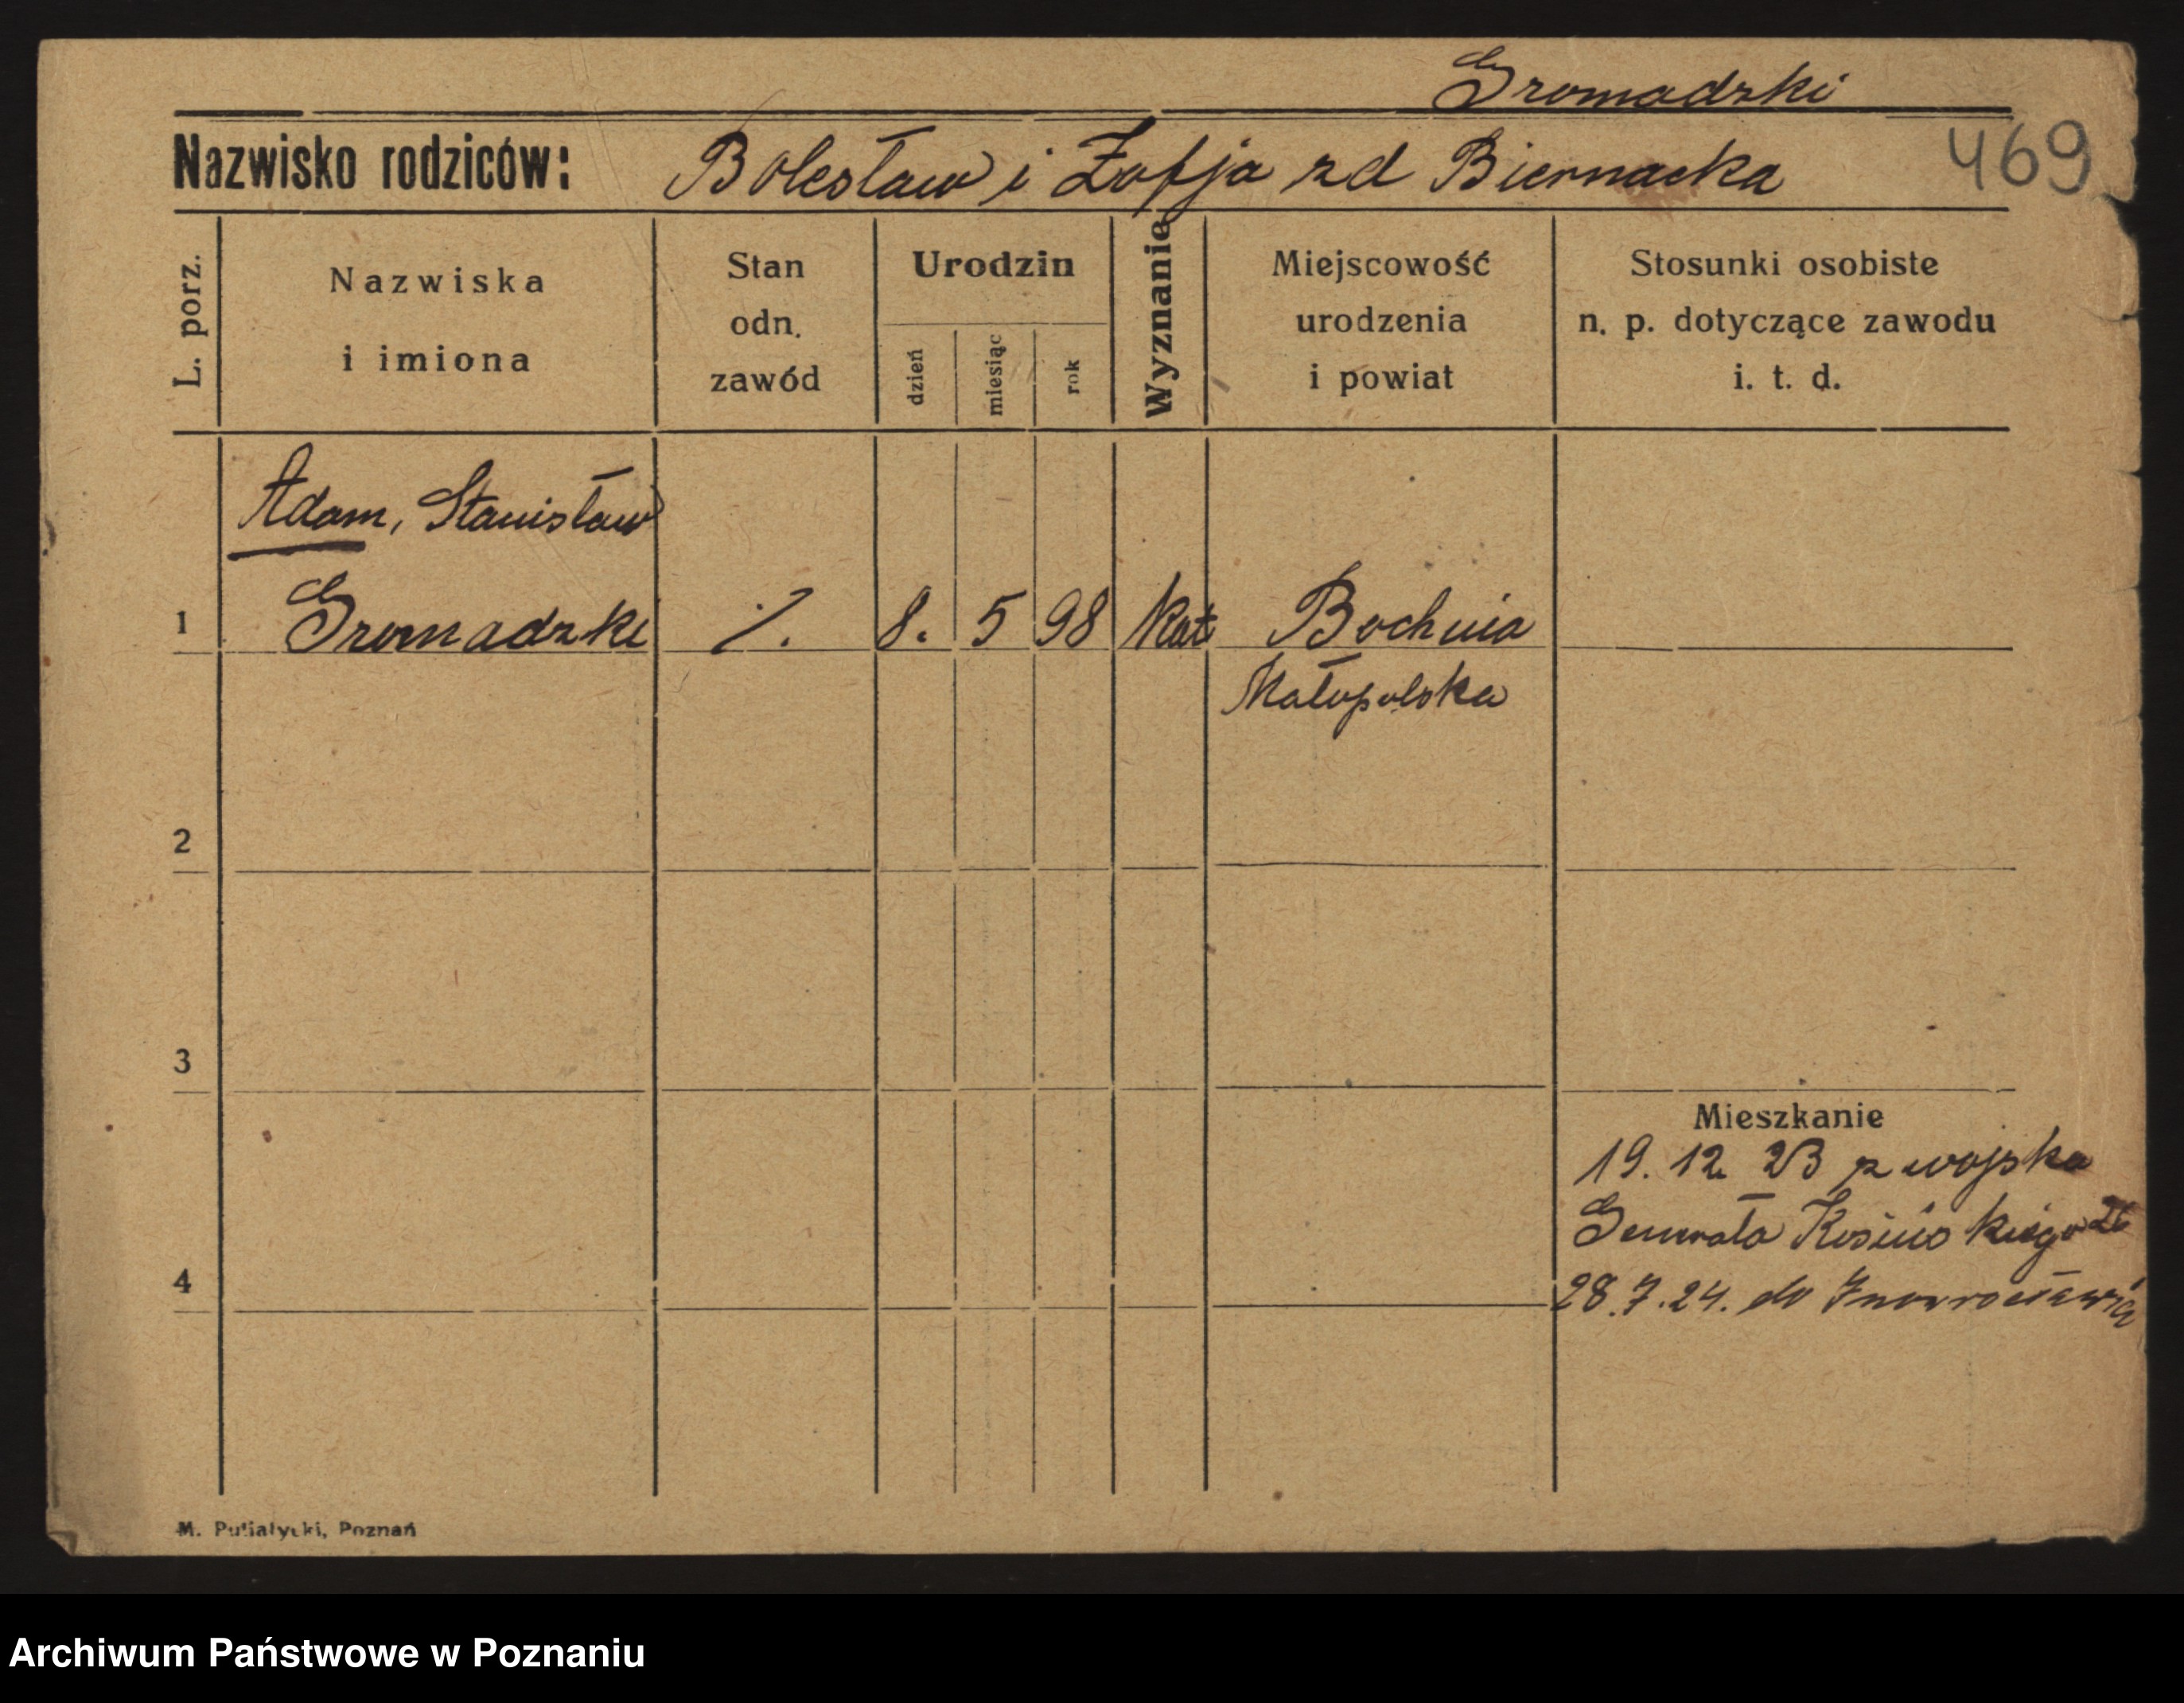 Gromadzki
Nazwisko rodziców: Bolesław i Zofja zd Biernacka
469
L. porz.
Nazwiska
i imiona
Stan
odn.
zawód
Urodzin
dzień
miesiąc
rok
Wyznanie
Miejscowość
urodzenia
i powiat
Stosunki osobiste
n. p. dotyczące zawodu
i. t. d.
Adam, Stanisław
1 Gromadzki 8. 5 98 kat Bochnia
Małopolska
2
3
Mieszkanie
19. 12 23 z wojska
Generała Kosińskiego 26
4
28.7.24. do Inowrocławia
M. Putiatycki, Poznań
Archiwum Państwowe w Poznaniu